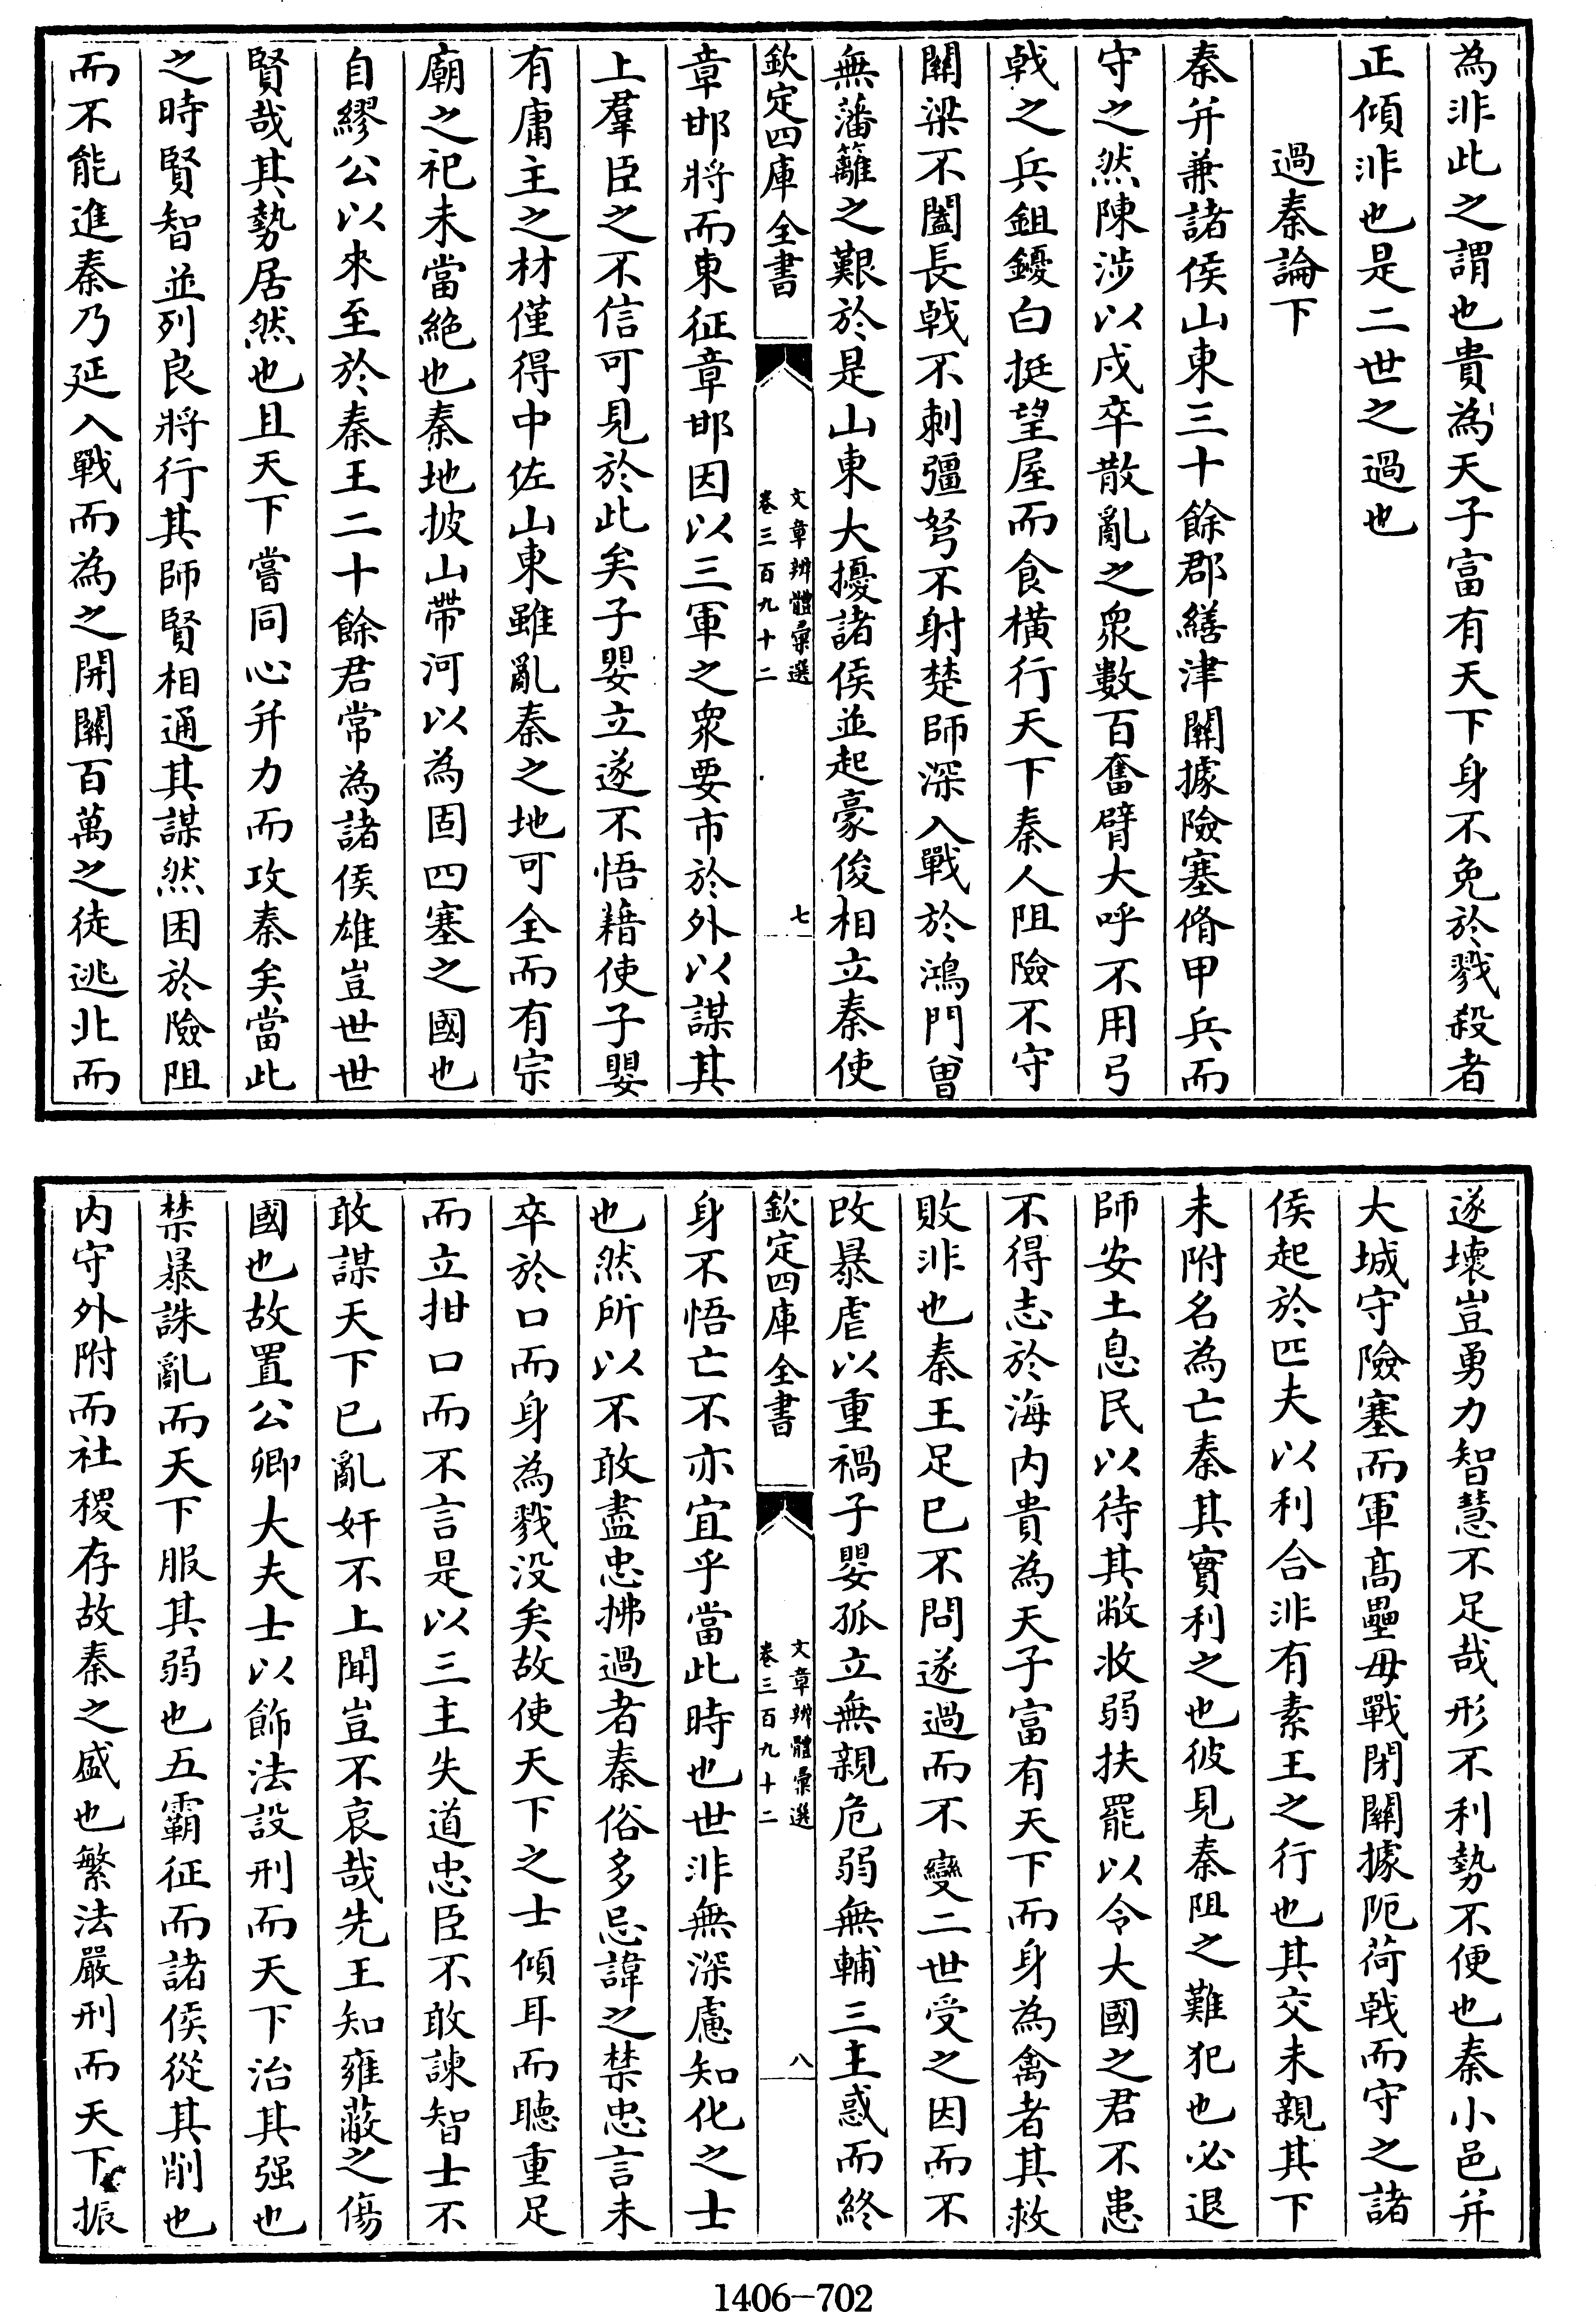 為非此之謂也貴為天子富有天下身不免於戮殺者
正傾非也是二世之過也
過秦論下
秦并兼諸侯山東三十餘郡繕津關據險塞脩甲兵而
守之然陳涉以戍卒散亂之衆數百奮臂大呼不用弓
戟之兵鉏鎫白挺望屋而食横行天下秦人阻險不守
關梁不闔長戟不刺彊弩不射楚師深入戰於鴻門曾
無藩籬之艱於是山東大擾諸侯並起豪俊相立秦使
欽定四庫全書
文章辨體彙選
卷三百九十二
七
章邯將而東征章邯因以三軍之衆要市於外以謀其
上羣臣之不信可見於此矣子嬰立遂不悟藉使子嬰
有庸主之材僅得中佐山東雖亂秦之地可全而有宗
廟之祀未當絶也秦地披山帶河以為固四塞之國也
自繆公以來至於秦王二十餘君常為諸侯雄豈世世
賢哉其勢居然也且天下嘗同心并力而攻秦矣當此
之時賢智並列良將行其師賢相通其謀然困於險阻
而不能進秦乃延入戰而為之開關百萬之徒逃北而
遂壞豈勇力智慧不足哉形不利勢不便也秦小邑并
大城守險塞而軍髙壘毋戰閉關據阨荷戟而守之諸
侯起於匹夫以利合非有素王之行也其交未親其下
未附名為亡秦其實利之也彼見秦阻之難犯也必退
師安土息民以待其敝收弱扶罷以令大國之君不患
不得志於海内貴為天子富有天下而身為禽者其救
敗非也秦王足已不問遂過而不變二世受之因而不
改暴虐以重禍子嬰孤立無親危弱無輔三主惑而終
欽定四庫全書
文章辨體彙選
卷三百九十二
八
身不悟亡不亦宜乎當此時也世非無深慮知化之士
也然所以不敢盡忠拂過者秦俗多忌諱之禁忠言未
卒於口而身為戮没矣故使天下之士傾耳而聽重足
而立拑口而不言是以三主失道忠臣不敢諫智士不
敢謀天下已亂奸不上聞豈不哀哉先王知雍蔽之傷
國也故置公卿大夫士以飾法設刑而天下治其强也
禁暴誅亂而天下服其弱也五霸征而諸侯從其削也
内守外附而社稷存故秦之盛也繁法嚴刑而天下振
1406-702